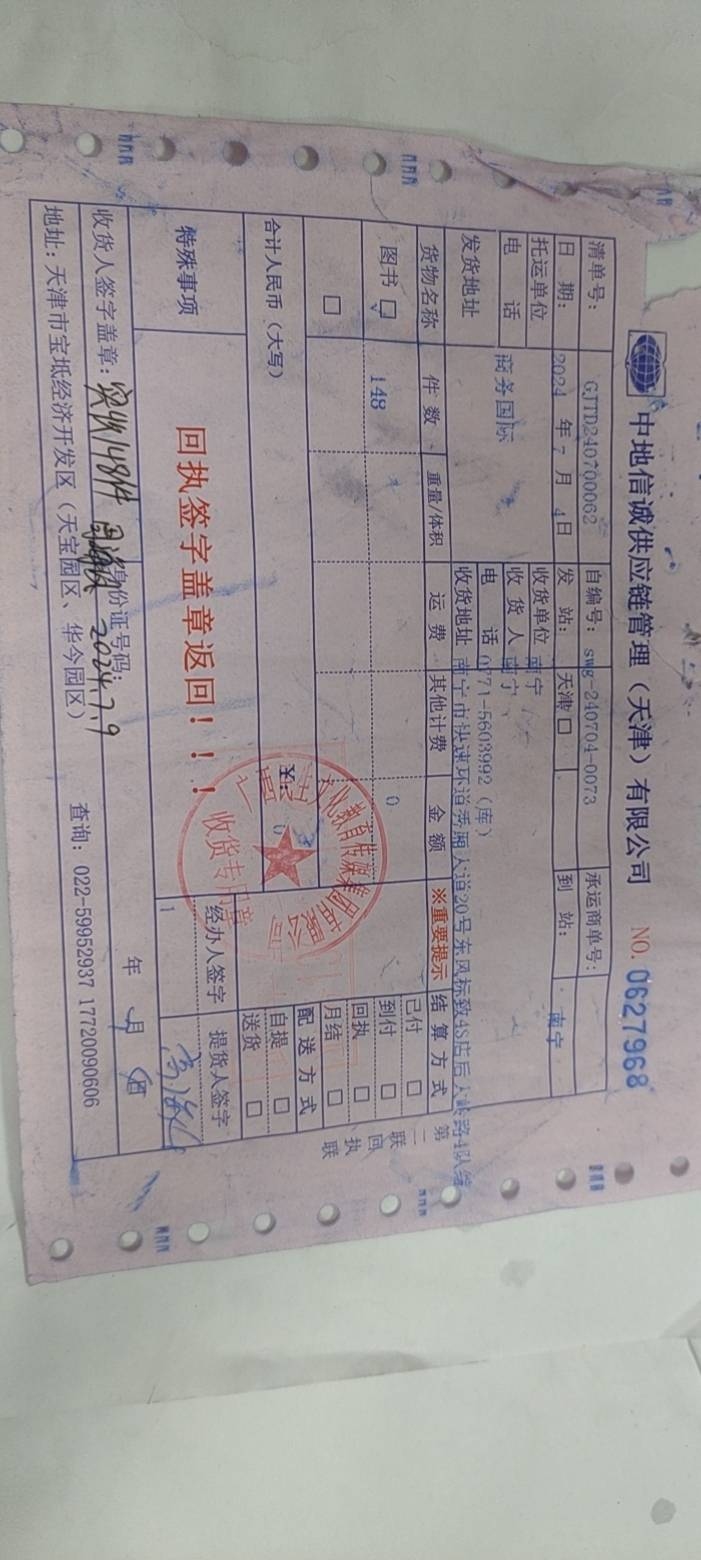 中地信诚供应链管理（天津）有限公司 NO. 0627968
清单号： GJTD240700062 自编号：swg-240704-0073 承运商单号：
日 期： 2024 年 7 月 4日 发 站： 天津 到 站： 南宁
托运单位 收货单位 南宁
电 话 商务国际 收 货 人 南宁
电 话 0771-5603992（库）
发货地址 收货地址 南宁市快速环道秀厢大道20号东风标致4S店后大岭路4队
货物名称 件 数 重量/体积 运 费 其他计费 金 额 ※重要提示 结 算 方 式
图书 ☑ 148 0
已付 □
到付 □
回执 □
月结 □
合计人民币（大写） 0
配 送 方 式
自提 □
送货 □
特殊事项 回执签字盖章返回！！！
经办人签字 提货人签字
收货人签字盖章：实收148件 身份证号码： 2024.7.9 年 月 日
地址：天津市宝坻经济开发区（天宝园区、华今园区） 查询：022-59952937 17720090606
第二联 回执联
文化教育传媒集团有限公司
收货专用章